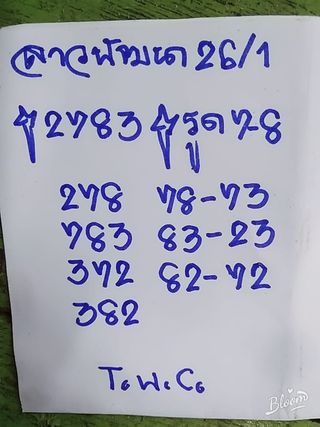 ลาวพัฒนา 26/1
2783 รูด 7-8
278 78-73
783 83-23
372 82-72
382
T.W.C.
Bloom